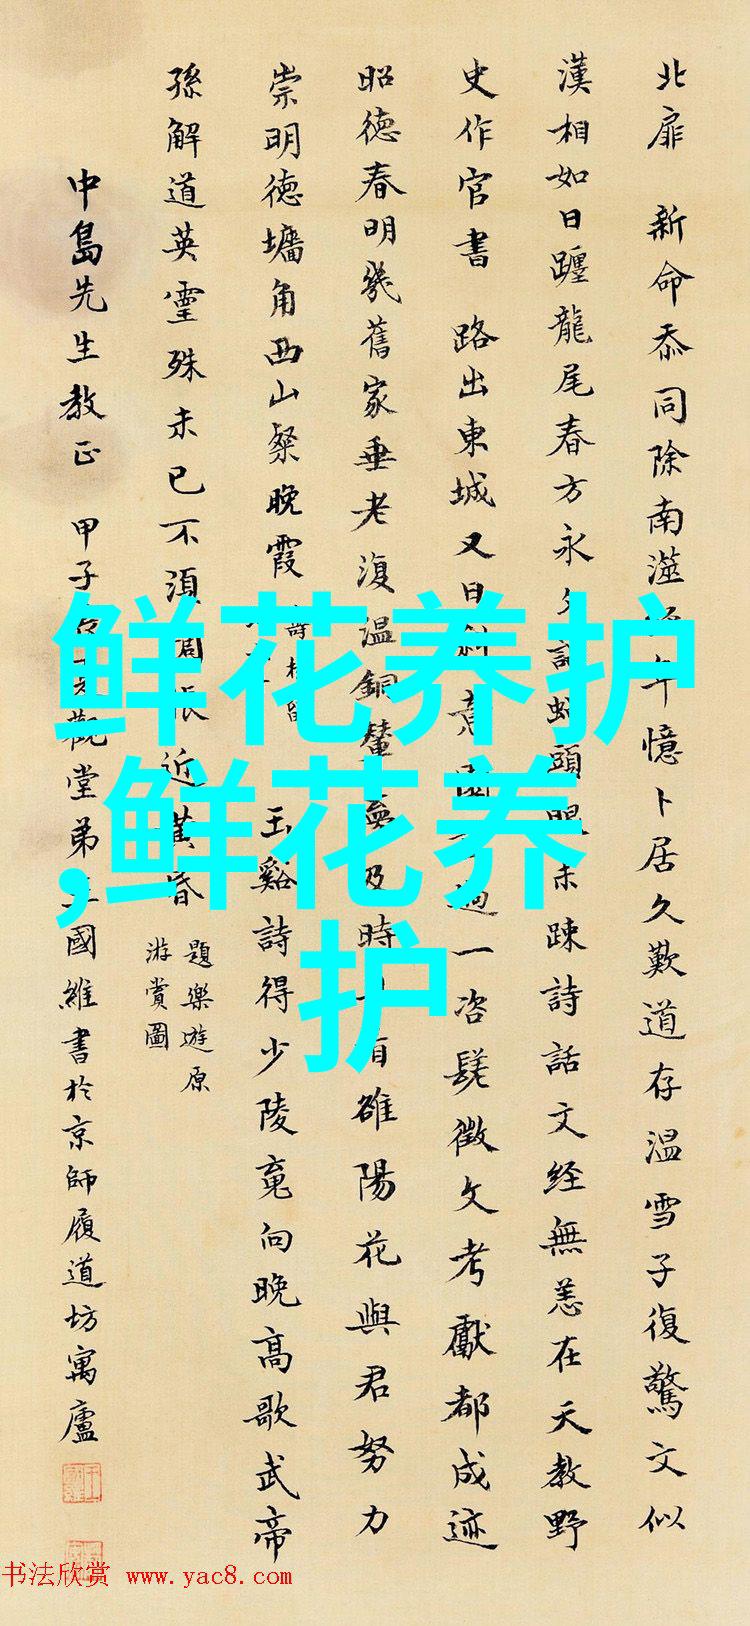 北扉 新命忝同除南澨
年憶卜居久歎道存温雪子復驚文似
漢相如日躔龍尾春方永夕
頭眼未疎詩話文经無恙在天教野
史作官書 路出東城又日斜意園
過一咨嗟徵文考獻都成迹
昭德春明幾舊家垂老復温銅輦
及時
雒陽花與君努力
崇明德墻角西山粲晚霞
玉谿詩得少陵竟向晚高歌武帝
孫解道英靈殊未已不須惆悵近黄昏
題樂遊原
游賞圖
中島先生教正 甲子
觀堂弟王國維書於京師履道坊寓廬
鲜花养护
,鲜花养
护
书法欣赏 www.yac8.com